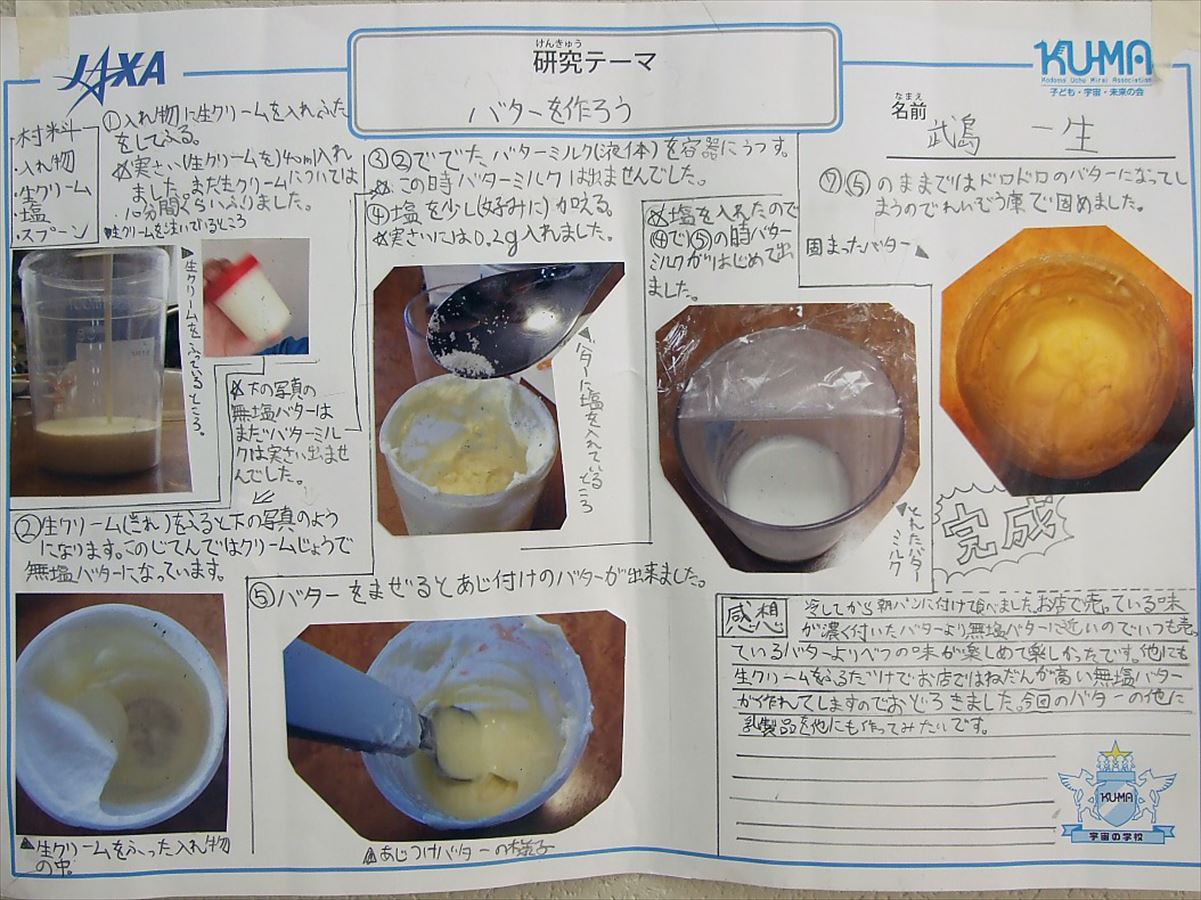 JAXA
けんきゅう
研究テーマ
バターを作ろう
KU-MA
Kodomo Uchu Mirai Association
子ども・宇宙・未来の会
なまえ
名前
武島 一生
材料
・入れ物
・生クリーム
・塩
・スプーン
①入れ物に生クリームを入れふた
をしてふる。
※実さい(生クリームを)40ml入れ
ました。まだ生クリームについては
・10分間ぐらいふりました。
生クリームを注いでいるところ
▶生クリームをふっているところ。
※下の写真の
無塩バターは
まだバターミル
クは実さい出ませ
んでした。
②生クリーム(これ)をふると下の写真のよう
になります。このじてんではクリームじょうで
無塩バターになっています。
▲生クリームをふった入れ物
の中。
③②ででた、バターミルク(液体)を容器にうつす。
※この時バターミルクは出ませんでした。
④塩を少し(好みに)加える。
※実さいには0.2g入れました。
バターに塩を入れているところ
※塩を入れたので
④で⑤の時バター
ミルクがはじめて出
ました。
とれたバター
ミルク
⑤バターをまぜるとあじ付けのバターが出来ました。
▲あじつけバターの様子
⑦⑤のままではドロドロのバターになってし
まうのでれいぞう庫で固めました。
固まったバター
完成
感想
冷してから朝パンに付けて食べました。お店で売っている味
が濃く付いたバターより無塩バターに近いのでいつも売っ
ているバターよりべつの味が楽しめて楽しかったです。他にも
生クリームをふるだけでお店ではねだんが高い無塩バター
が作れてしますのでおどろきました。今回のバターの他に
乳製品を他にも作ってみたいです。
KU-MA
宇宙の学校